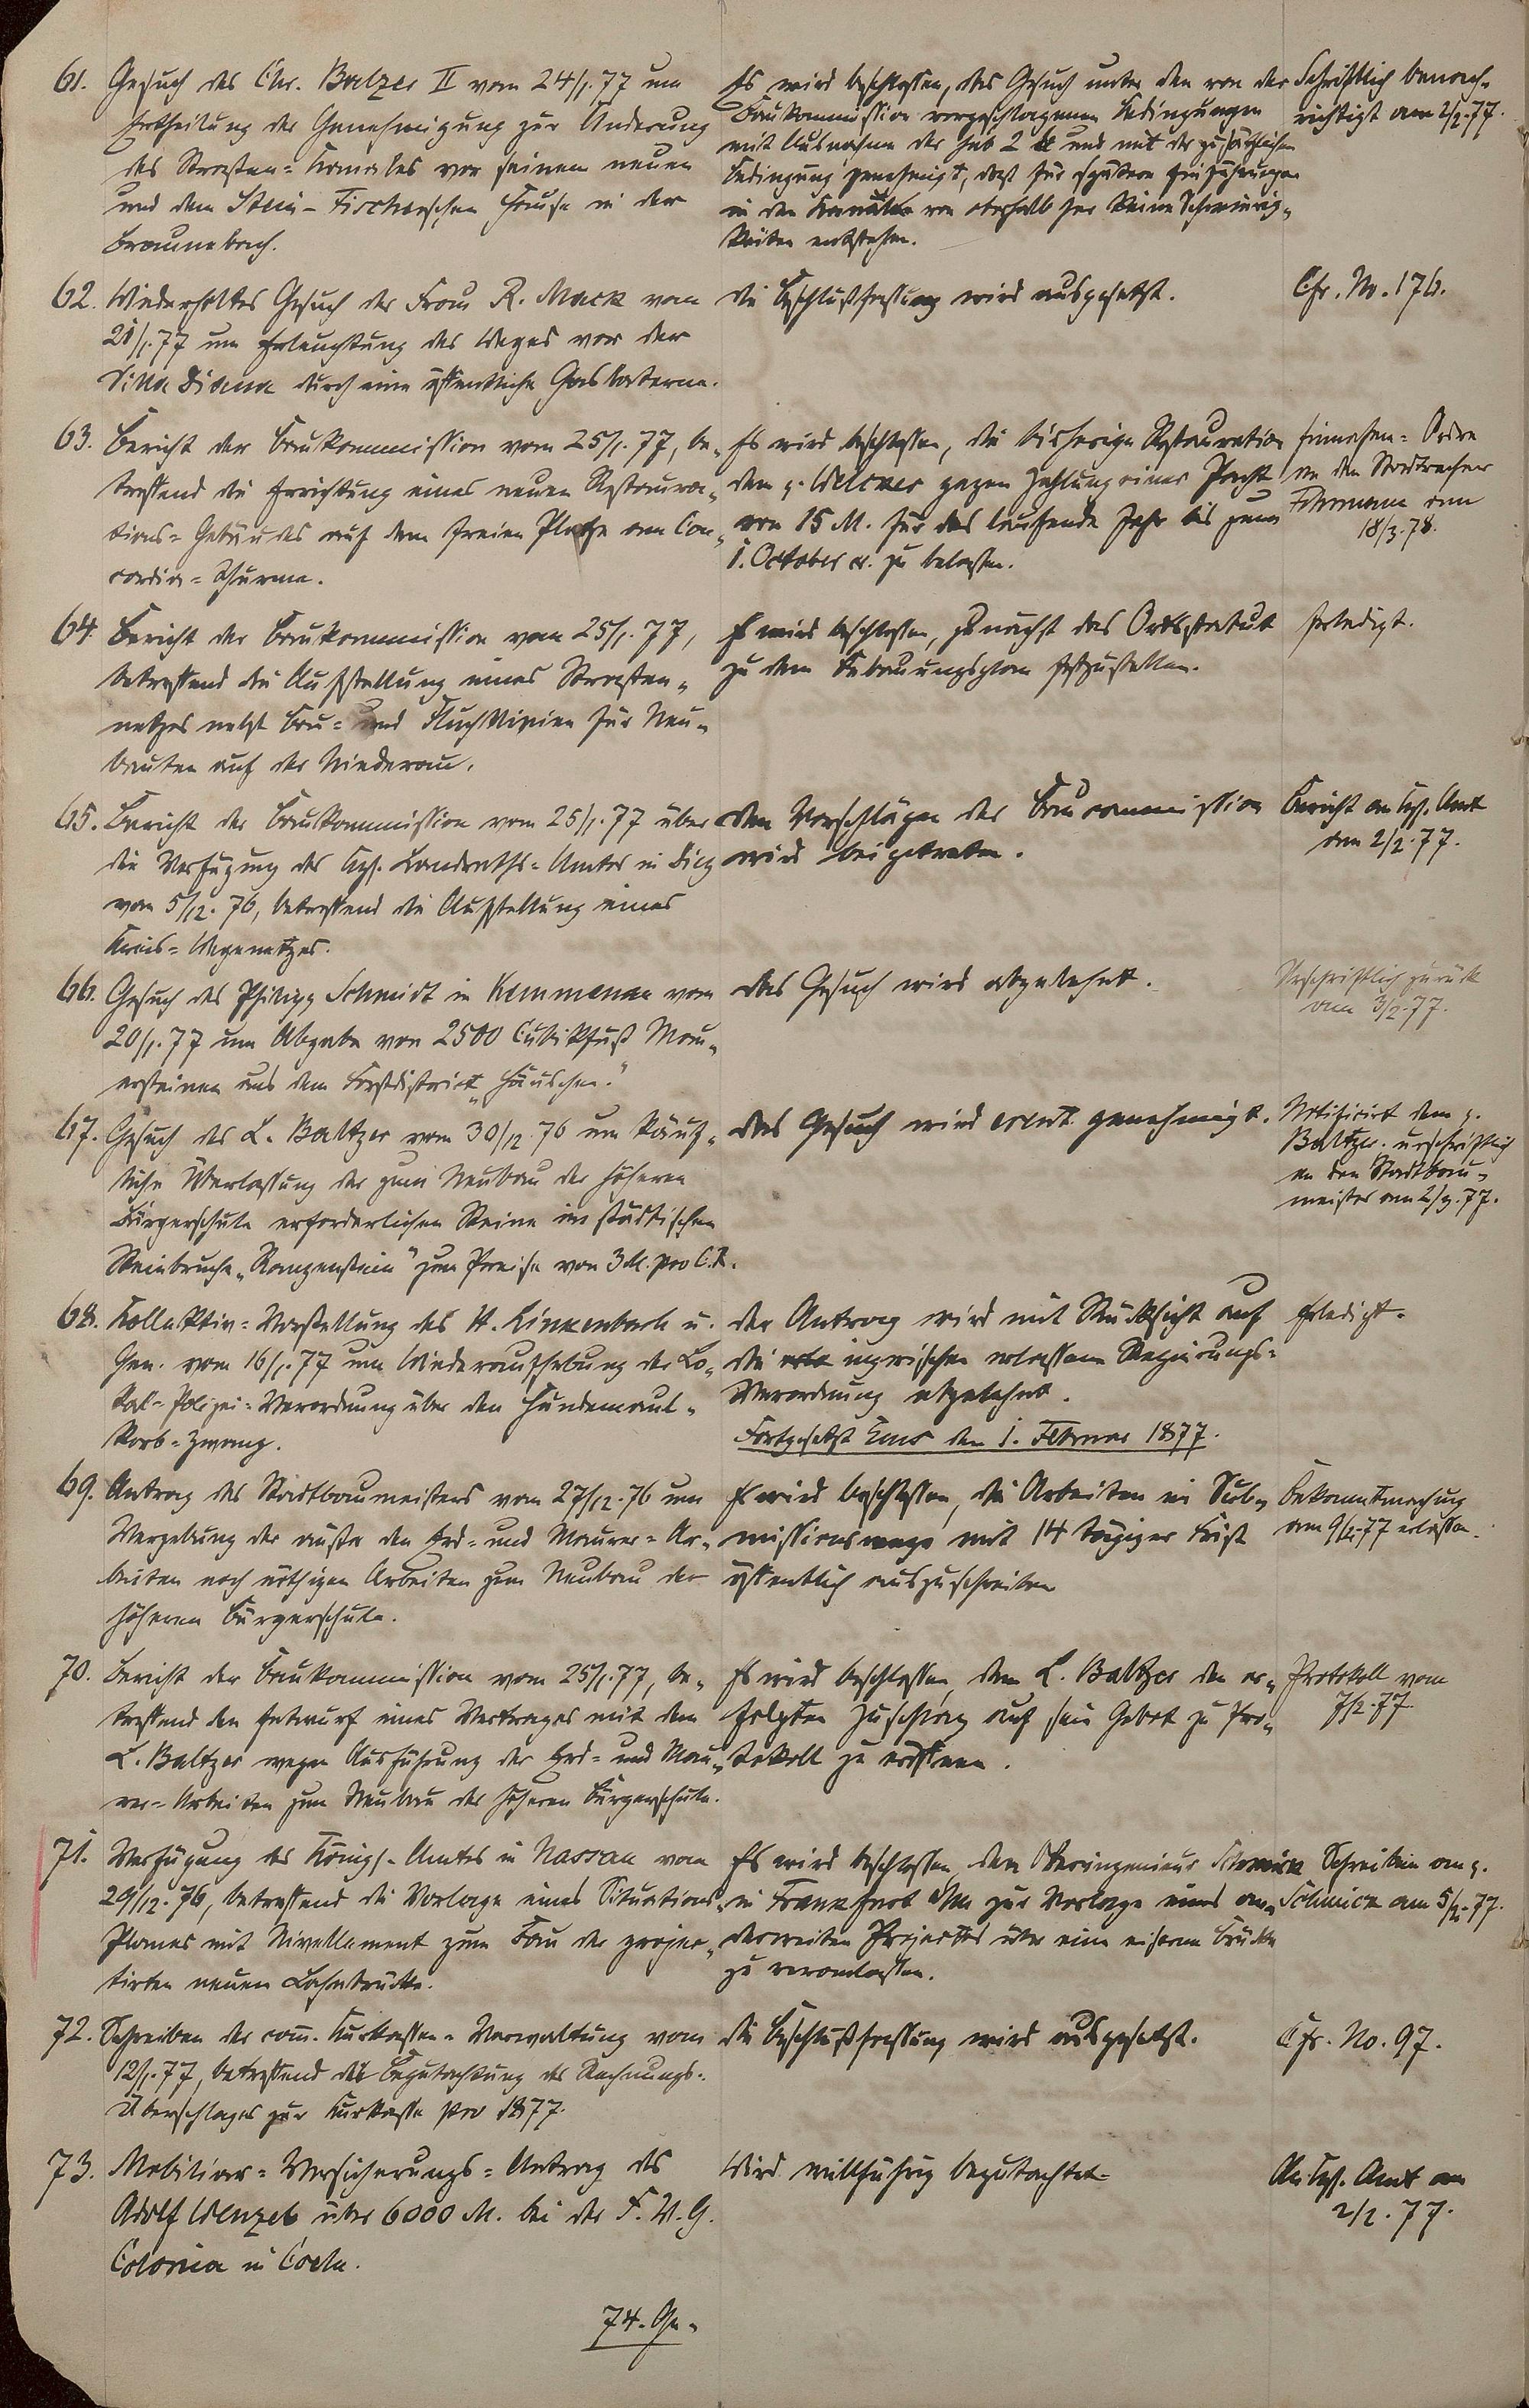 61. Gesuch des Chr. Balzer II vom 24/1. 77 um
Ertheilung der Genehmigung zur Änderung
des Straßen-Kanales vor seinem neuen
und dem Stein-Fischerschen Hause in der
Braunebach.
Es wird beschlossen, das Gesuch unter den von der
Baukommission vorgeschlagenen Bedingungen
mit Ausnahme der sub 2 und mit der zusätzlichen
Bedingung genehmigt, daß für spätere Einführungen
in den Kanal von oberhalb her keine Schwierig-
keiten entstehen.
Schriftlich benach-
richtigt am 2/2. 77.
62. Wiederholtes Gesuch der Frau R. Mack vom
21/1. 77 um Erleuchtung des Weges vor der
Villa Diana durch eine öffentliche Gaslaterne.
die Beschlußfassung wird ausgesetzt.
Cfr. No. 176.
63. Bericht der Baukommission vom 25/1. 77, be-
treffend die Errichtung eines neuen Restaura-
tions-Gebäudes auf dem freien Platze am Con-
cordia-Thurme.
Es wird beschlossen, die bisherige Restauration
dem p. Welcker gegen Zahlung einer Pacht
von 15 M. für das laufende Jahr bis zum
1. October cr. zu belassen.
Einnahme-Ordre
an den Stadtrechner
am
18/3. 78.
64. Bericht der Baukommission vom 25/1. 77,
betreffend die Aufstellung eines Straßen-
netzes nebst Bau- und Fluchtlinien für Neu-
bauten auf der Niederau.
Es wird beschlossen, zunächst das Ortsstatut
zu dem Bebauungsplan festzustellen.
Erledigt.
65. Bericht der Baukommission vom 25/1. 77 über
die Verfügung des Kgl. Landraths-Amtes in Diez
vom 5/12. 76, betreffend die Aufstellung eines
Kreis-Wegenetzes.
den Vorschlägen der Baucommission
wird beigetreten.
Bericht an Kgl. Amt
am 2/2. 77.
66. Gesuch des Philipp Schmidt in Kemmenau vom
20/1. 77 um Abgabe von 2500 Cubikfuß Mau-
ersteinen aus dem Forstdistrict „Häuschen."
das Gesuch wird abgelehnt.
Urschriftlich zurück
am 3/2. 77.
67. Gesuch des L. Baltzer vom 30/12. 76 um käuf-
liche Überlassung der zum Neubau der höheren
Bürgerschule erforderlichen Steine im städtischen
Steinbruche „Ranzenstein" zum Preise von 3 M. pro C.R.
das Gesuch wird event. genehmigt.
Notificirt dem p.
Baltzer. urschriftlich
an den Stadtbau-
meister am 2/3. 77.
68. Kollektiv-Vorstellung des H. Linkenbach u.
Gen. vom 16/1. 77 um Wiederaufhebung der Lo-
kal-Polizei-Verordnung über den Hundemaul-
korb-Zwang.
der Antrag wird mit Rücksicht auf
die inzwischen erlassene Regierungs-
Verordnung abgelehnt.
Erledigt.
Fortgesetzt Ems den 1. Februar 1877.
69. Antrag des Stadtbaumeisters vom 27/12. 76 um
Vergebung der außer den Erd- und Maurer-Ar-
beiten noch nöthigen Arbeiten zum Neubau der
höheren Bürgerschule.
Es wird beschlossen, die Arbeiten im Sub-
missionswege mit 14 tägiger Frist
öffentlich auszuschreiben
Bekanntmachung
am 9/2. 77 erlassen.
70. Bericht der Baukommission vom 25/1. 77, be-
treffend den Entwurf eines Vertrages mit dem
L. Baltzer wegen Ausführung der Erd- und Mau-
rer-Arbeiten zum Neubau der höheren Bürgerschule.
Es wird beschlossen, dem L. Baltzer den er-
folgten Zuschlag auf sein Gebot zu Pro-
tokoll zu eröffnen.
Protokoll vom
7/2. 77.
71. Verfügung des Königl. Amtes in Nassau vom
29/12. 76, betreffend die Vorlage eines Situations-
Planes mit Nivellement zum Bau der projec-
tirten neuen Lahnbrücke.
Es wird beschlossen, den Oberingenieur Schmick
in Frankfurt a/M zur Vorlage eines an-
derweiten Projectes über eine eiserne Brücke
zu veranlassen.
Schreiben an p.
Schmick am 5/2. 77.
72. Schreiben der com. Kurkassen-Verwaltung vom
12/1. 77, betreffend die Begutachtung des Rechnungs-
Überschlages zur Kurkasse pro 1877.
die Beschlußfassung wird ausgesetzt.
Cfr. No. 97.
73. Mobiliar-Versicherungs-Antrag des
Adolf Wenzel über 6000 M. bei der F. V. G.
Colonia in Coeln.
Wird willfährig begutachtet.
An Kgl. Amt am
2/2. 77.
74. Ge-